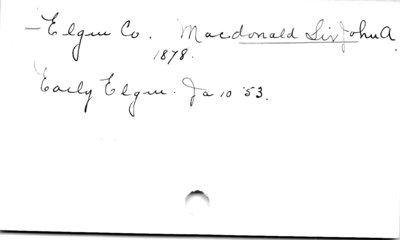 - Elgin Co. Macdonald Sir John A.
1878.
Early Elgin. Ja 10 '53.